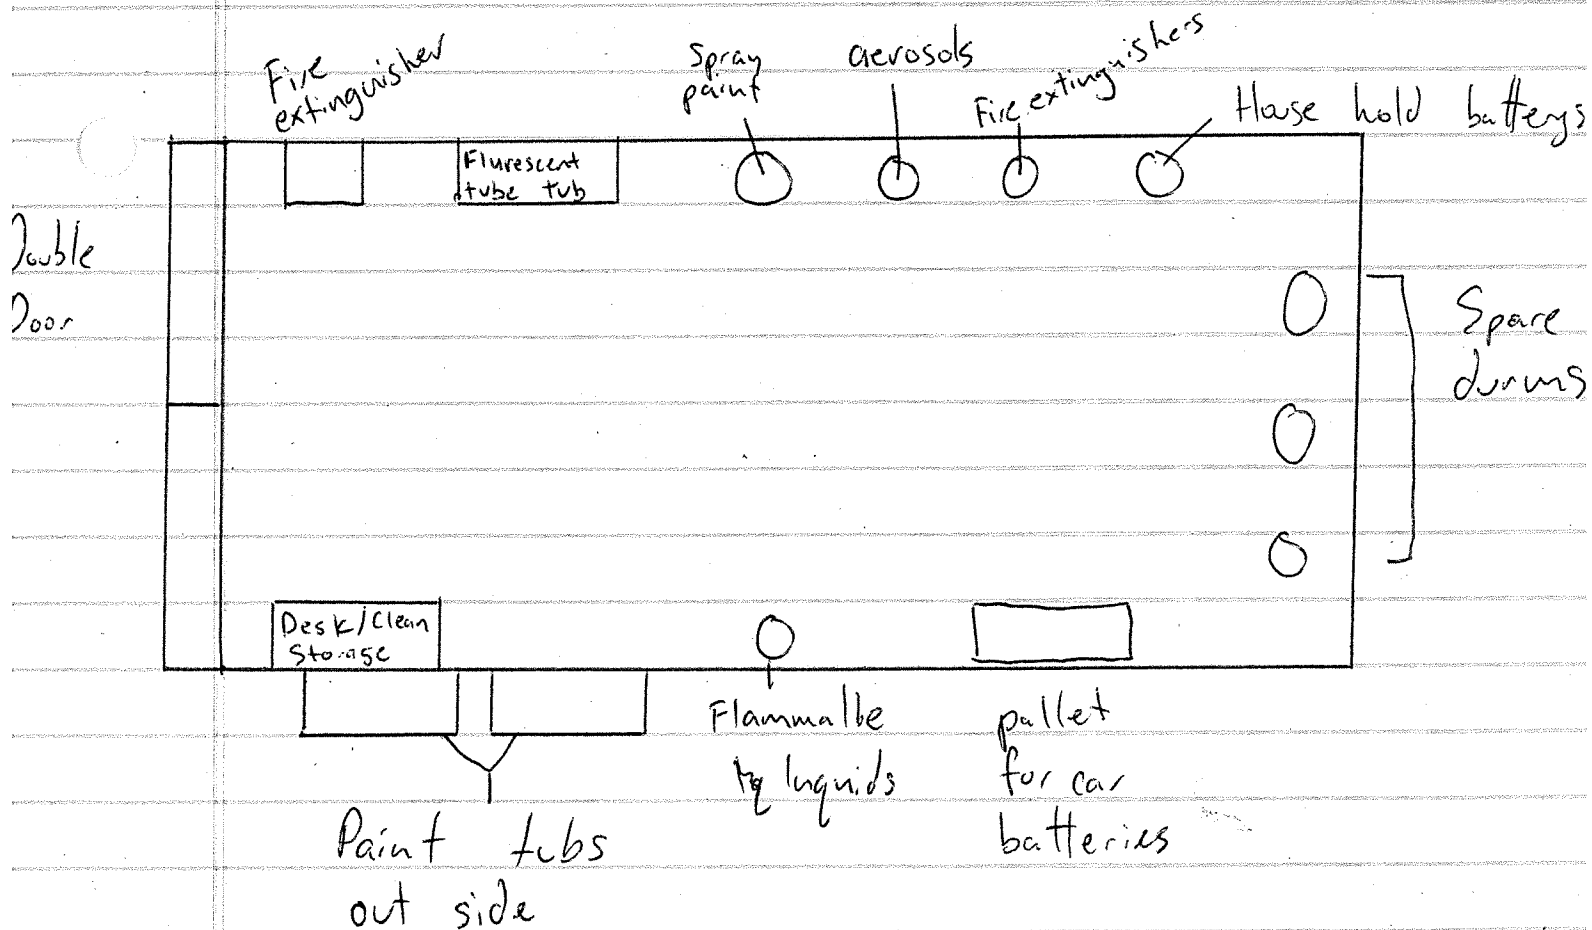 Fire
extinguisher
Spray
paint
aerosols
Fire extinguishers
House hold batterys
Flurescent
tube tub
Double
Door
Spare
durms
Desk/Clean
Storage
Flammalbe
luquids
pallet
for car
batteries
Paint tubs
out side